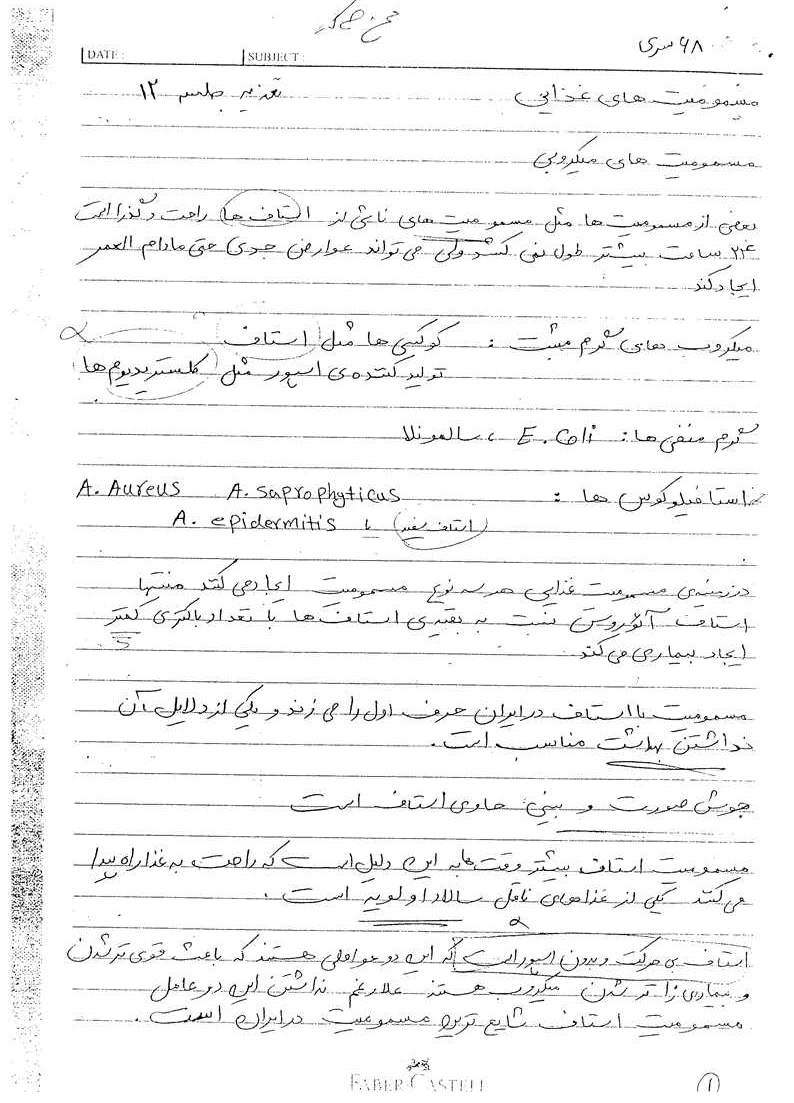 ۶۸ سری
DATE: SUBJECT:
مسمومیت های غذایی تغذیه جلسه ۱۲
مسمومیت های میکروبی
بعضی از مسمومیت ها مثل مسمومیت های ناشی از استاف ها راحت و گذرا است
۲۴ ساعت بیشتر طول نمی کشد ولی می تواند عوارض جدی حتی مادام العمر
ایجاد کند
میکروب های گرم مثبت : کوکسی ها مثل استاف
تولید کننده ی اسپور مثل کلستریدیوم ها
گرم منفی ها: E. Coli ، سالمونلا
استافیلوکوس ها : A. Aureus A. saprophyticus
A. epidermitis یا (استاف سفید)
در زمینه ی مسمومیت غذایی هر سه نوع مسمومیت ایجاد می کند منتها
استاف آئوروس نسبت به بقیه ی استاف ها با تعداد باکتری کمتر
ایجاد بیماری می کند
مسمومیت با استاف در ایران حرف اول را می زند و یکی از دلایل آن
نداشتن بهداشت مناسب است.
جوش صورت و بینی حاوی استاف است
مسمومیت استاف بیشتر وقت ها به این دلیل است که راحت به غذا راه پیدا
می کنند یکی از غذاهای ناقل سالاد اولویه است.
استاف بی حرکت و بدون اسپور است که این دو عواملی هستند که باعث قوی تر شدن
و بیماری زا تر شدن میکروب هستند علارغم نداشتن این دو عامل
مسمومیت استاف شایع ترین مسمومیت در ایران است.
FABER-CASTELL
۱